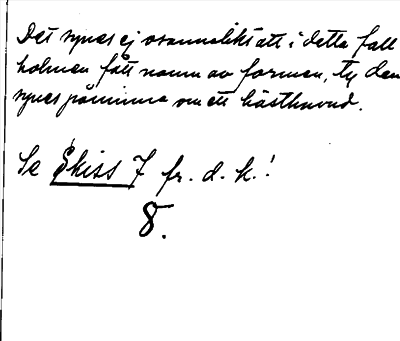 Det synes ej osannolikt att i detta fall
holmen fått namn av formen, ty den
synes påminna om ett hästhuvud.
Se Skiss 7 fr. d. h.!
8.